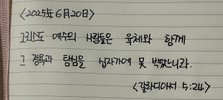 <2025年 6月20日>
그리스도 예수의 사람들은 육체와 함께
그 정욕과 탐심을 십자가에 못 박았느니라.
<갈라디아서 5:24>